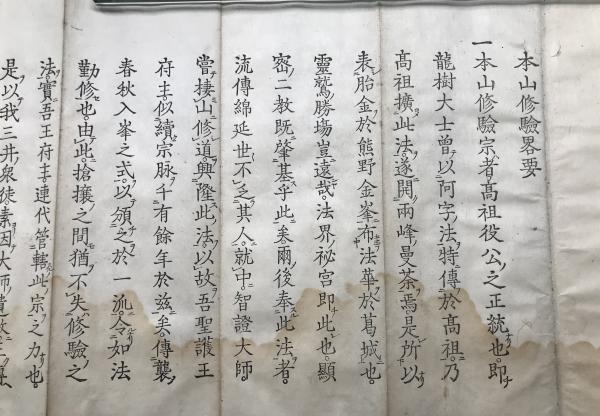 本山修驗畧要
一本山修驗宗者髙祖役公之正統也即
龍樹大士曾以阿字法特傳於髙祖乃
髙祖擴此法遂開兩峰曼荼焉是所以
表胎金於熊野金峯布法華於葛城也
靈鷲勝場豈遠哉法界秘宮即此也顯
密二教既肇基乎此矣爾後奉此法者
流傳綿延世不乏其人就中智證大師
嘗棲山修道興隆此法以故吾聖護王
府主似續宗脉千有餘年於兹矣傳襲
春秋入峯之式以頒之於一流令如法
勤修也由此搶攘之間猶不失修驗之
法實吾王府主連代管轄此宗之力也
是以我三井衆徒素因大師遺